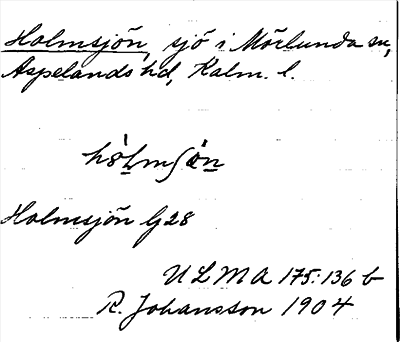 Holmsjön, sjö i Mörlunda sn,
Aspelands hd, Kalm. l.
Holmsjön G28
ULMA 175:136 b
R. Johansson 1904